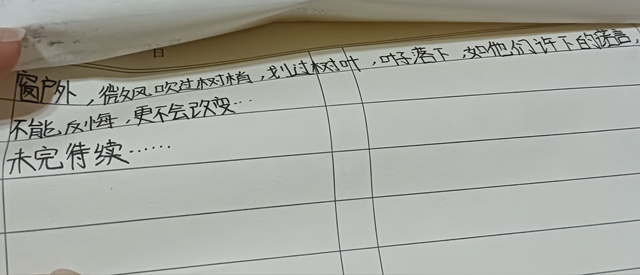 窗户外，微风吹过树梢，划过树叶，叶落下，如他们许下的诺言，
不能反悔，更不会改变…
未完待续……